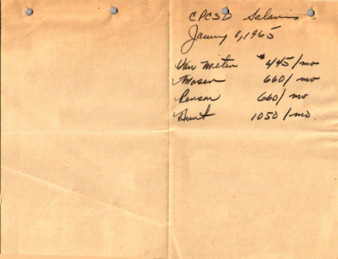 CPCSD Salaries
January 1, 1965
Van Meter $445/mo
Moser 660/mo
Penson 660/mo
Hunt 1050/mo.